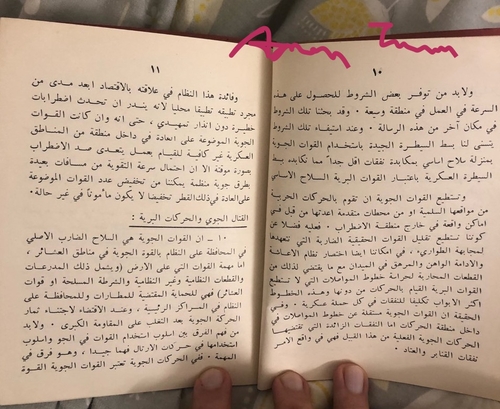 ١٠
ولابد من توفر بعض الشروط للحصول على هذه
السرعة في العمل في منطقة وسيعة . وقد بحثنا تلك الشروط
في مكان آخر من هذه الرسالة . وعند استيفاء تلك الشروط
يتسنى لنا بسط السيطرة الجيدة باستخدام القوات الجوية
بمنزلة سلاح اساسي بمكابدة نفقات اقل جداً مما تكابده بسط
السيطرة العسكرية باعتبار القوات البرية السلاح الاساسي
وتستطيع القوات الجوية ان تقوم بالحركات الحربية
من مواقعها السلمية او من محطات متقدمة اعدتها من قبل في
اماكن واقعة في خارج منطقة الاضطراب . فعليه فضلا عن
كوننا نستطيع تقليل القوات الحقيقية الضاربة التي نتعهدها
لمجابهة الطوارىء ، في امكاننا ايضا اختصار نظام الاعاشة
والادامة الواهن والمرهق في الميدان مع ما يقتضي لذلك من
القطعات المحاربة لحراسة خطوط المواصلات التي لا تستطيع
القوات البرية القيام بالحركات من دونها وهذه الخطوط
اكثر الابواب تكليفا للنفقات في كل حملة عسكرية . وفي
الحقيقة ان القوات الجوية مستقلة عن خطوط المواصلات في
داخل منطقة الحركات اما النفقات الزائدة التي تقتضيها
الحركات الجوية الفعلية من هذا القبيل فهي في واقع الامر
نفقات القنابر والعتاد .
١١
وفائدة هذا النظام في علاقته بالاقتصاد ابعد مدى من
مجرد تطبيقه تطبيقا محليا لانه يندر ان تحدث اضطرابات
خطيرة دون انذار تمهيدي ، حتى انه وان كانت القوات
الجوية الموضوعة على العادة في داخل منطقة من المناطق
العسكرية غير كافية للقيام بعمل يتعدى صد الاضطراب
بصورة موقتة الا ان احتمال سرعة التقوية من مسافات بعيدة
بطرق جوية منظمة يمكننا من تخفيض عدد القوات الموضوعة
على العادة في ذلك القطر تخفيضا لا يكون مأموناً في غير حالة .
القتال الجوي والحركات البرية :
١٠ - ان القوات الجوية هي السلاح الضارب الاصلي
في المحافظة على النظام بالقوة الجوية في مناطق العشائر ،
اما مهمة القوات التي على الارض (ويشمل ذلك المدرعات
والقطعات النظامية وغير النظامية والشرطة المسلحة او قوات
العشائر) فهي للحماية المقتضية للمطارات وللمحافظة على
النظام في المراكز الرئيسية ، وعند الاقتضاء لاجتناء ثمار
الحركة الجوية بعد التغلب على المقاومة الكبرى . ولابد
من فهم الفرق بين اسلوب استخدام القوات في الجو واسلوب
استخدامها في حركات الارتال فهما جيدا ، وهو فرق في
المهمة . ففي الحركات الجوية تعتبر القوات الجوية القوة